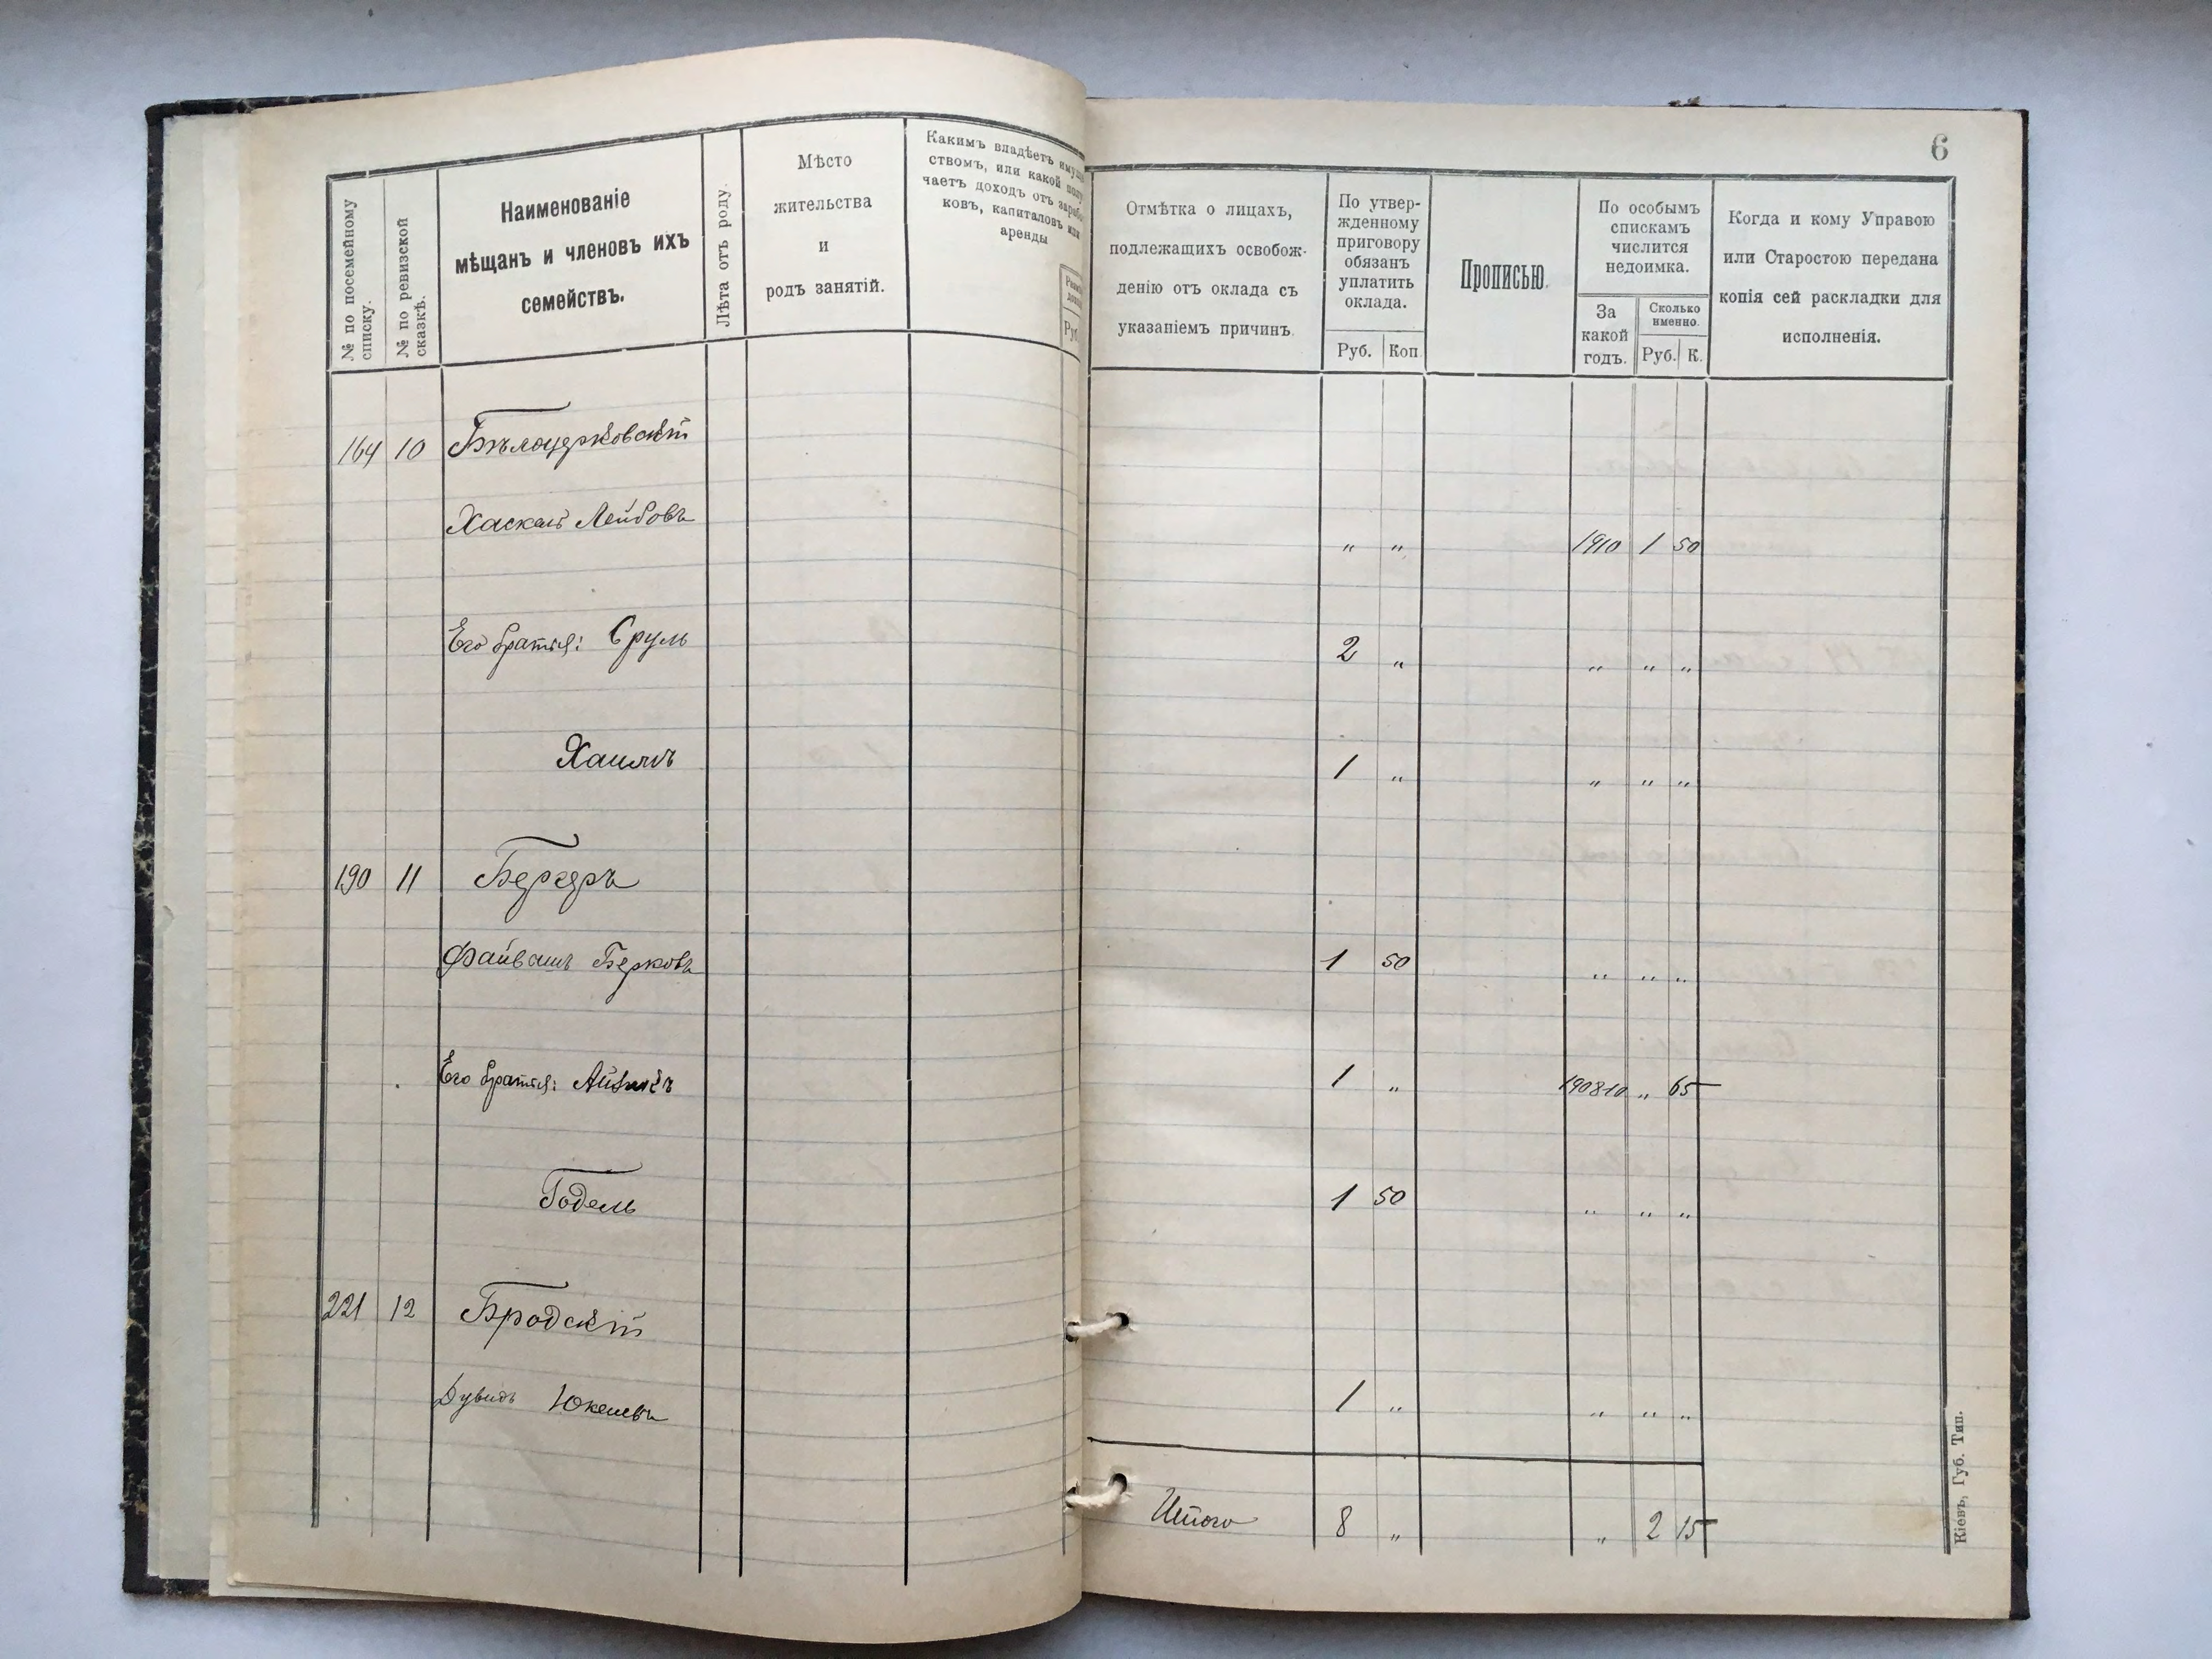 6
№ по посемейному
списку.
№ по ревизской
сказкѣ.
Наименованіе
мѣщанъ и членовъ ихъ
семействъ.
Лѣта отъ роду.
Мѣсто
жительства
и
родъ занятій.
Какимъ владѣетъ
ствомъ, или какой
чаетъ доходъ отъ
ковъ, капиталовъ или
аренды
Руб.
Отмѣтка о лицахъ,
подлежащихъ освобож-
денію отъ оклада съ
указаніемъ причинъ.
По утвер-
жденному
приговору
обязанъ
уплатить
оклада.
Руб. Коп
Прописью.
По особымъ
спискамъ
числится
недоимка.
За
какой
годъ.
Сколько
именно.
Руб. К.
Когда и кому Управою
или Старостою передана
копія сей раскладки для
исполненія.
164 10 Бѣлоцерковскій
Хаскель Лейбовъ „ „ 1910 1 50
Его братья: Сруль 2 „ „ „ „
Хаимъ 1 „ „ „ „
190 11 Бергеръ
Файвишъ Берковъ 1 50 „ „ „
Его братья: Айзикъ 1 „ 190810 „ 65
Годель 1 50 „ „ „
221 12 Бродскій
Дувидъ 1 „ „ „ „
Итого 8 „ „ 2 15
Кіевъ, Губ. Тип.